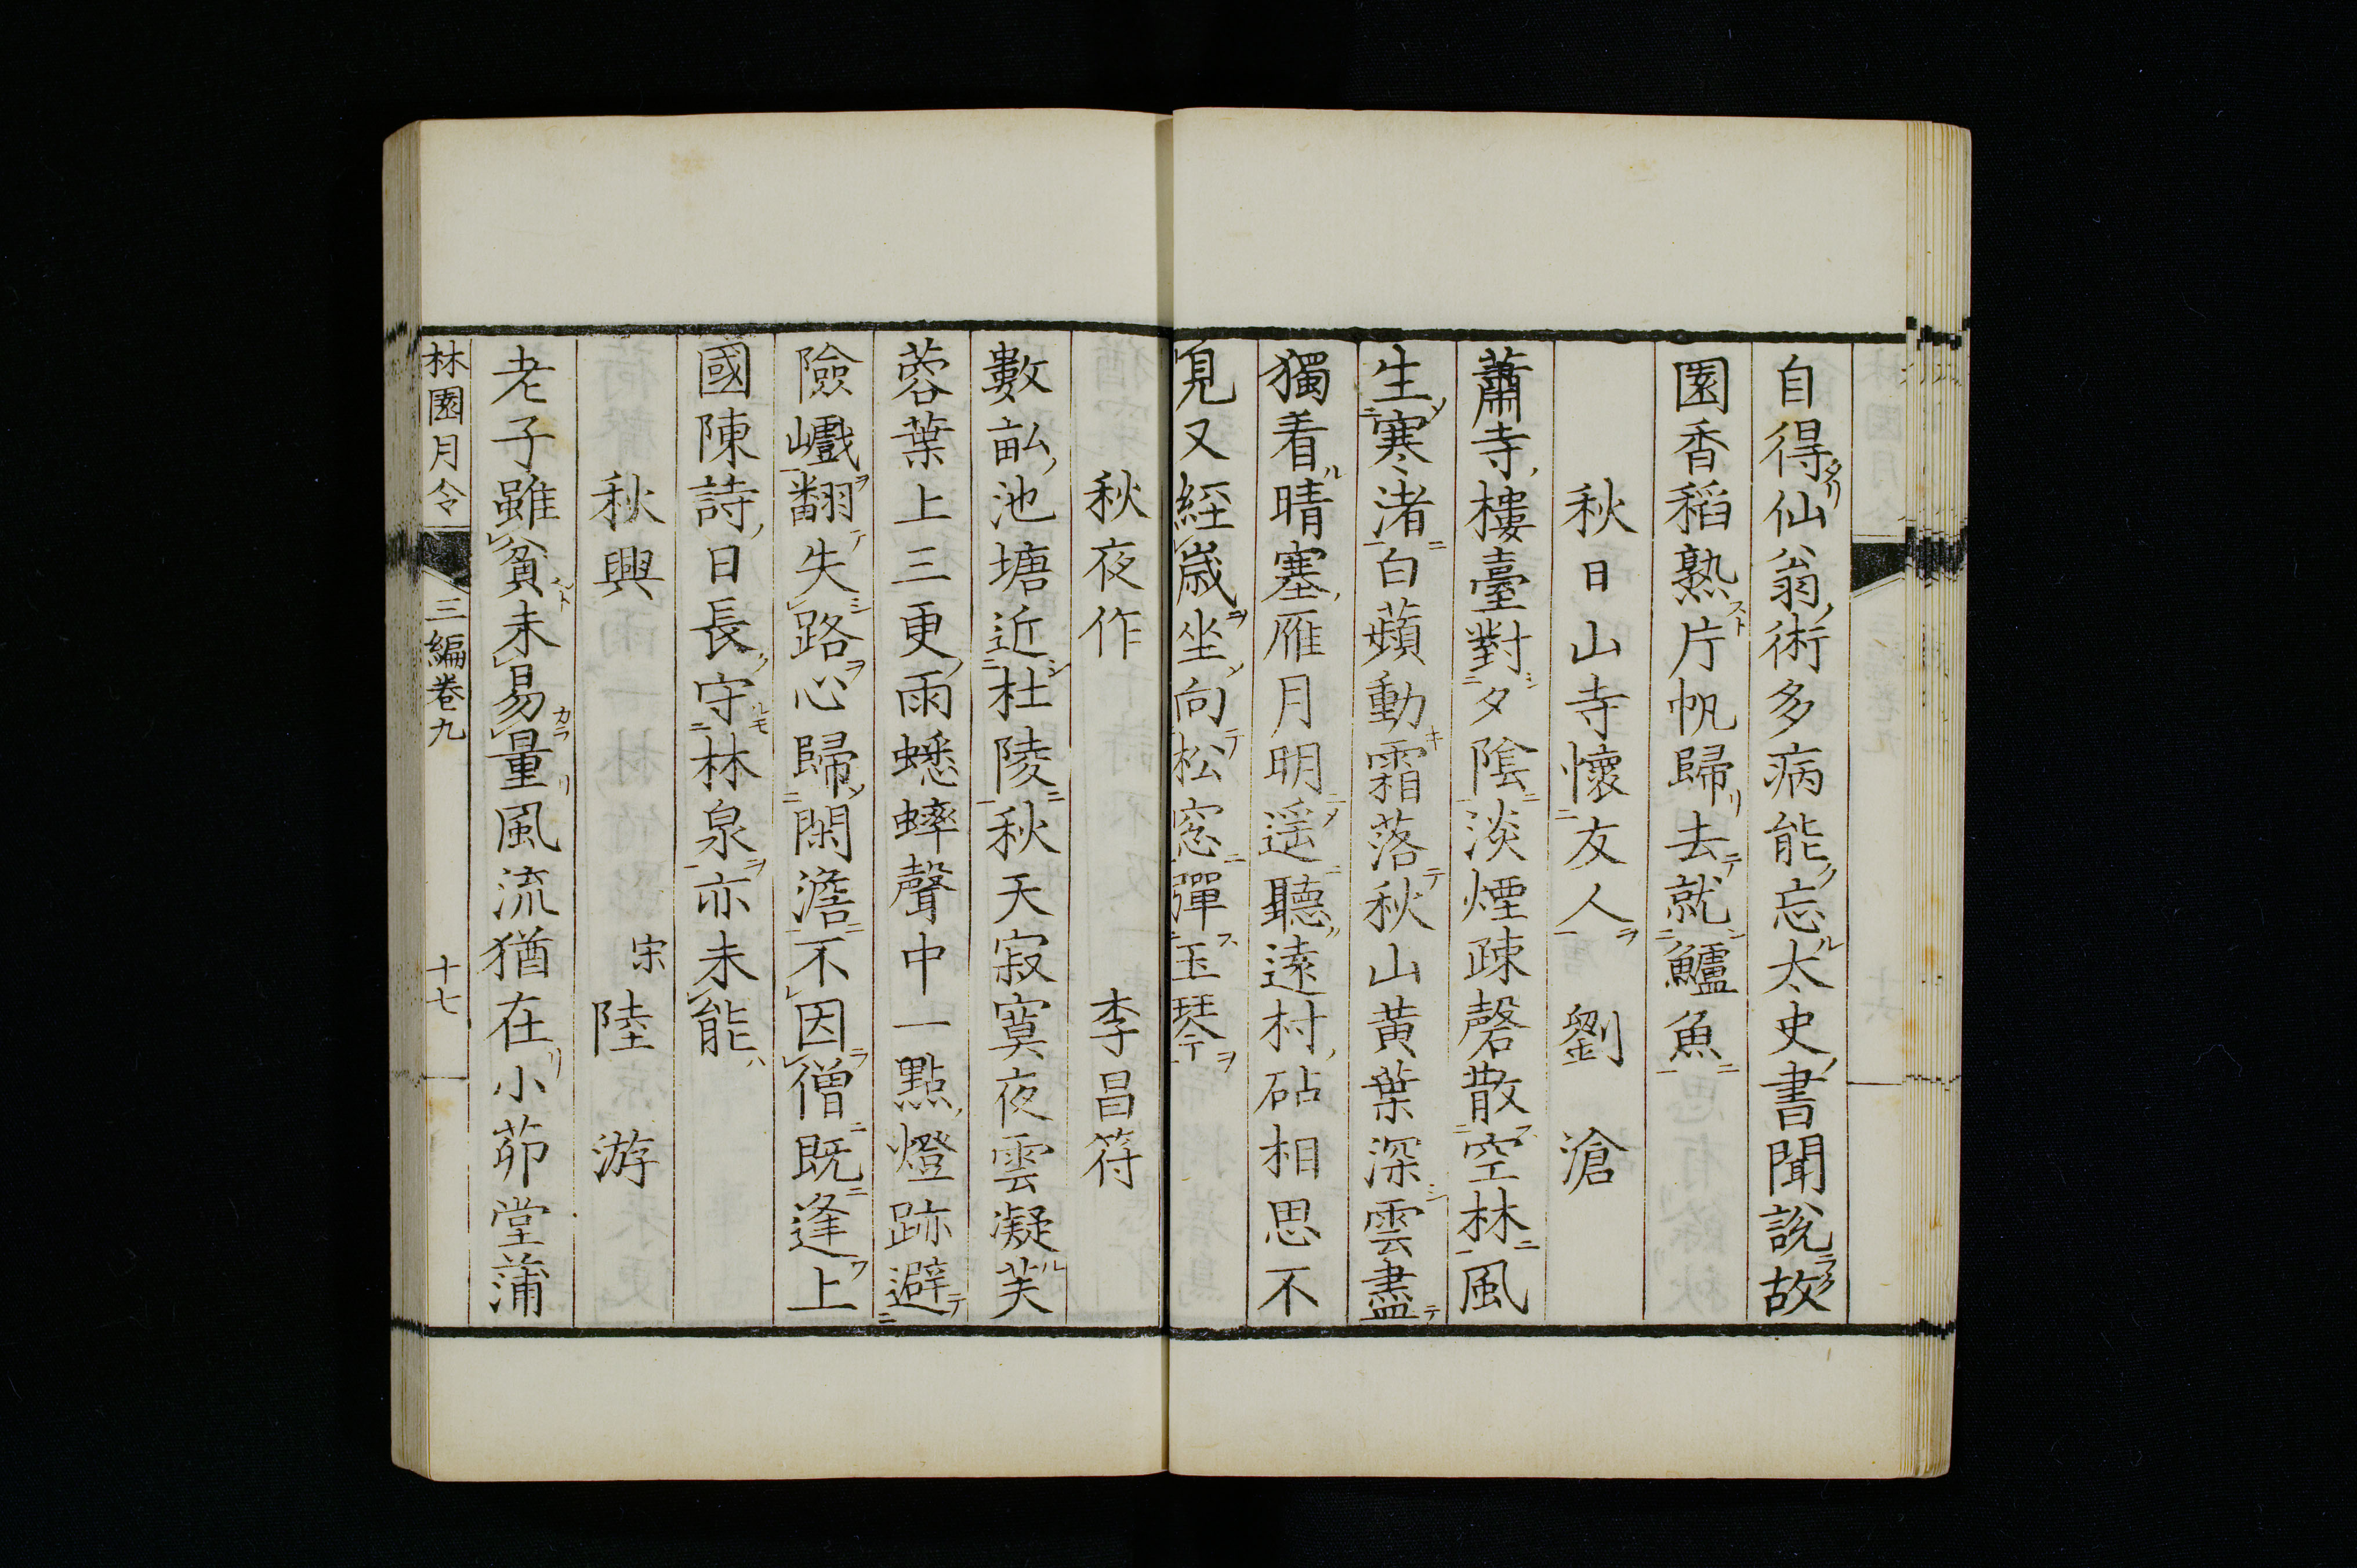 自得仙翁術多病能忘太史書聞說故
園香稻熟片帆歸去就鱸魚
秋日山寺懷友人 劉滄
蕭寺樓臺對夕陰淡煙疎磬散空林風
生寒渚白蘋動霜落秋山黃葉深雲盡
獨看晴塞雁月明遥聽遠村砧相思不
見又經歲坐向松窓彈玉琴
秋夜作 李昌符
數畝池塘近杜陵秋天寂寞夜雲凝芙
蓉葉上三更雨蟋蟀聲中一點燈跡避
險巇翻失路心歸閑澹不因僧既逢上
國陳詩日長守林泉亦未能
秋興 宋 陸游
老子雖貧未易量風流猶在小茆堂蒲
林園月令 三編卷九 十七